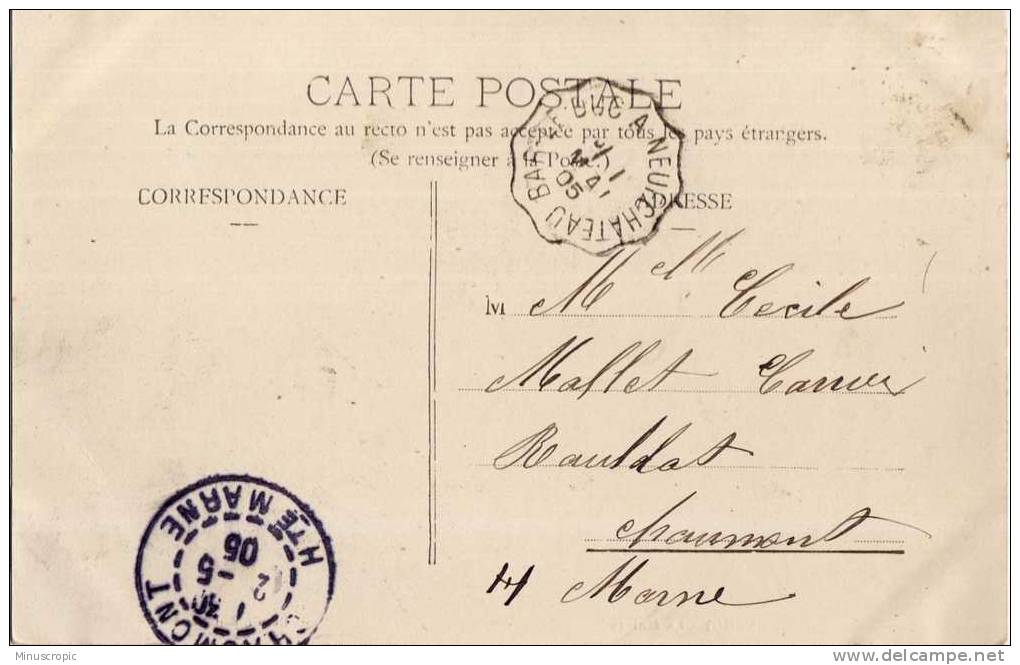 CARTE POSTALE
La Correspondance au recto n'est pas acceptée par tous les pays étrangers.
(Se renseigner à la Poste.)
CORRESPONDANCE
ADRESSE
BAR-LE-DUC A NEUFCHATEAU
1
MAI
05
M Mlle Cecile
Mallet
Chaumont
H Marne
CHAUMONT
HTE MARNE
1 30
2 -5
05
Minuscropic
delcampe.net